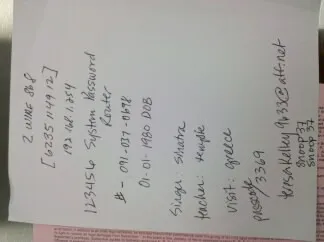 2 WIRE 868
[6235114912]
192.168.1.254
123456 System Password
Router
#- 091-037-0698
01-01-1980 DOB
Singer: shatra
teacher: temple
visit: greece
passcode
3369
teresakelley9633@att.net
snoop37
snoop 37